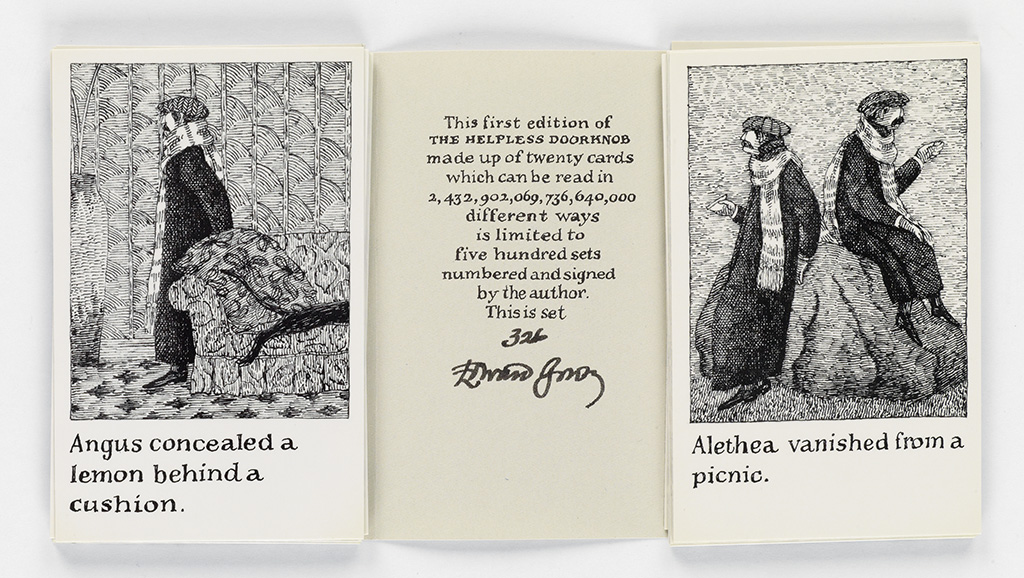 Angus concealed a
lemon behind a
cushion.
This first edition of
THE HELPLESS DOORKNOB
made up of twenty cards
which can be read in
2,432,902,069,736,640,000
different ways
is limited to
five hundred sets
numbered and signed
by the author.
This is set
326
Edward Gorey
Alethea vanished from a
picnic.